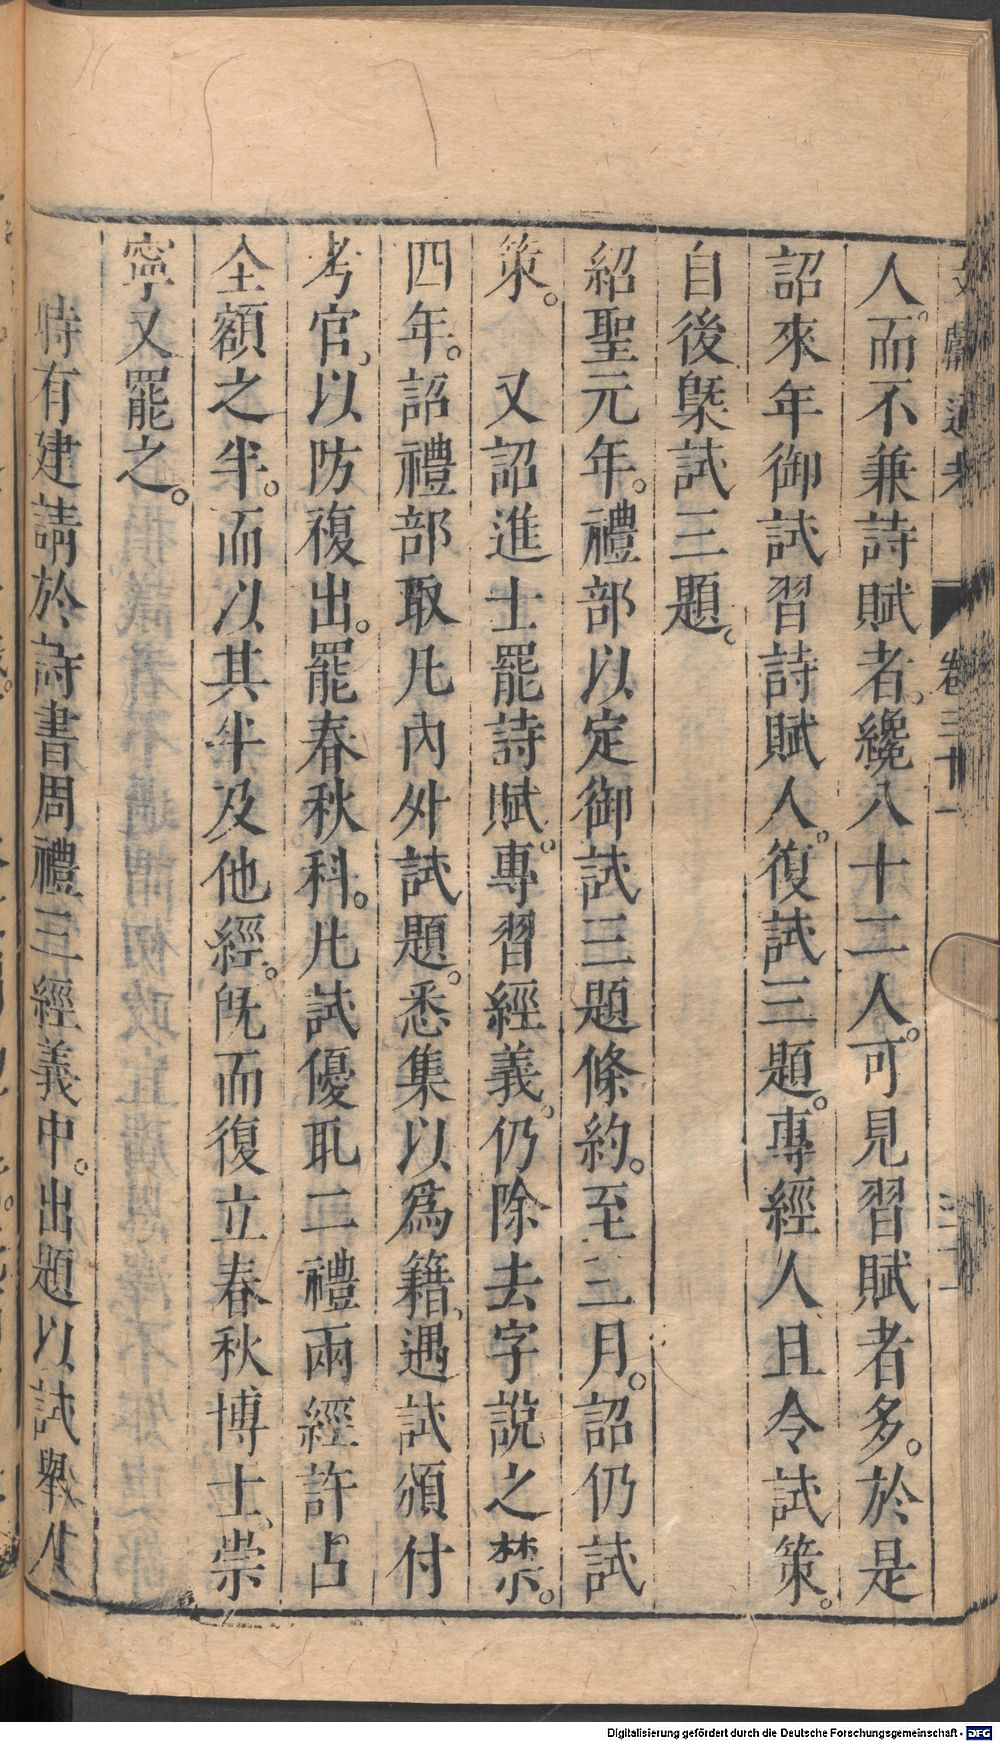 文獻通考 卷三十一
人。而不兼詩賦者。纔八十二人。可見習賦者多。於是
詔來年御試習詩賦人。復試三題。專經人且令試策。
自後槩試三題。
紹聖元年。禮部以定御試三題條約。至三月。詔仍試
策。 又詔進士罷詩賦。專習經義。仍除去字說之禁。
四年。詔禮部取凡內外試題。悉集以為籍、遇試頒付
考官、以防複出。罷春秋科。凡試優取二禮兩經許占
全額之半。而以其半及他經。旣而復立春秋博士、崇
寧又罷之。
時有建請於詩書周禮三經義中。出題以試舉人
Digitalisierung gefördert durch die Deutsche Forschungsgemeinschaft - DFG